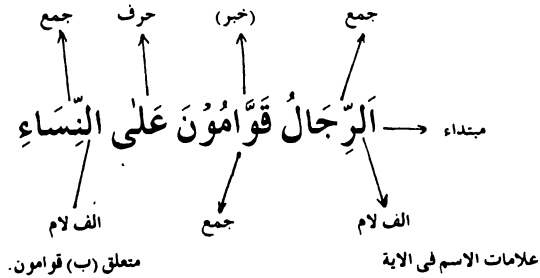 جمع (خبر) حرف جمع
اَلرِّجَالُ قَوَّامُوْنَ عَلٰى النِّسَاءِ
مبتداء
الف لام جمع الف لام
علامات الاسم فى الاية متعلق (ب) قوامون.